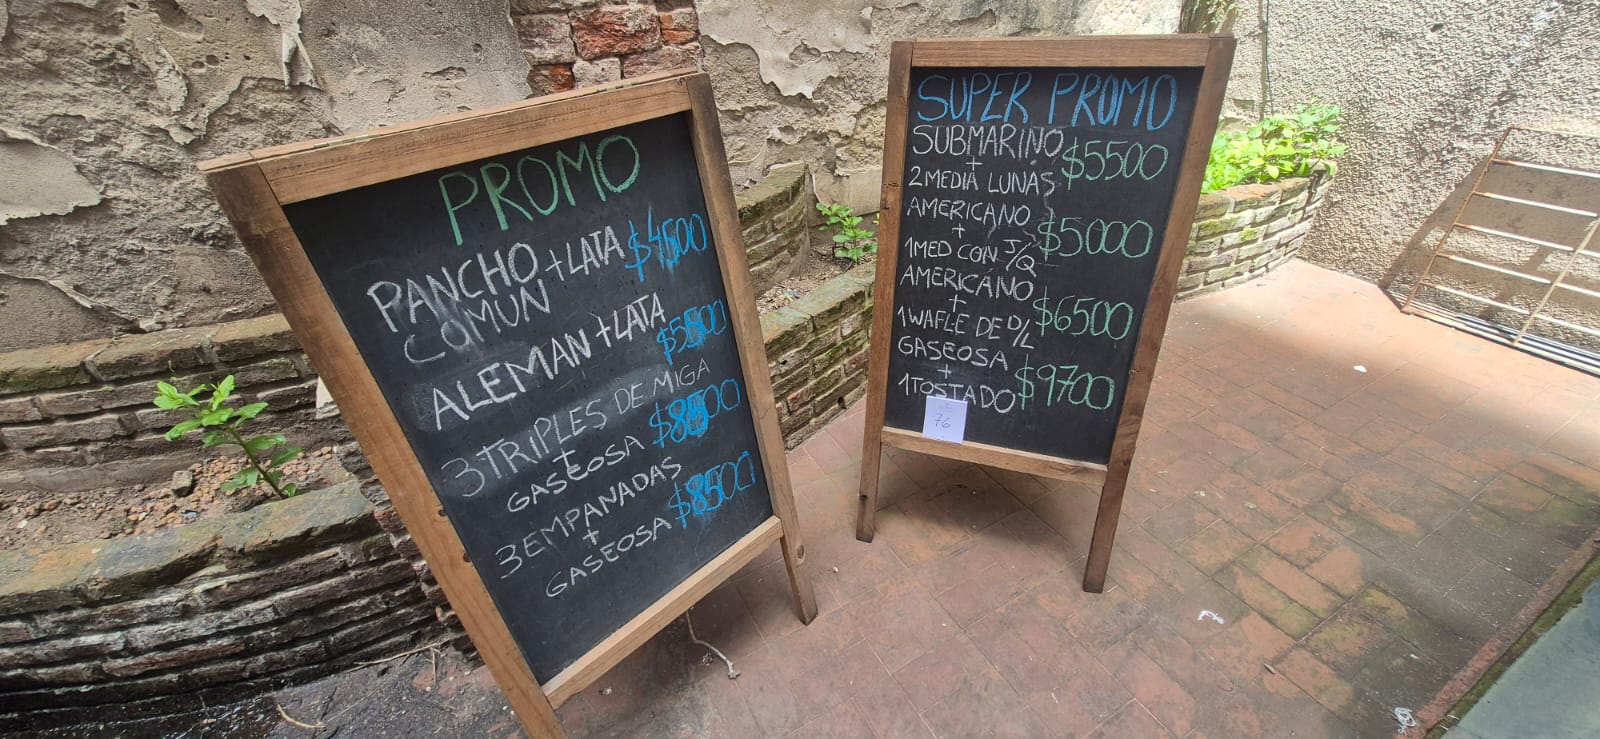 PROMO
PANCHO + LATA $4500
COMUN
ALEMAN + LATA
$5500
3 TRIPLES DE MIGA
+
GASEOSA $8500
3 EMPANADAS
+
GASEOSA $8500
SUPER PROMO
SUBMARINO
+
$5500
2 MEDIA LUNAS
AMERICANO
+
$5000
1 MED CON J/Q
AMERICANO
+
$6500
1 WAFLE DE D/L
GASEOSA
+
$9700
1 TOSTADO
76